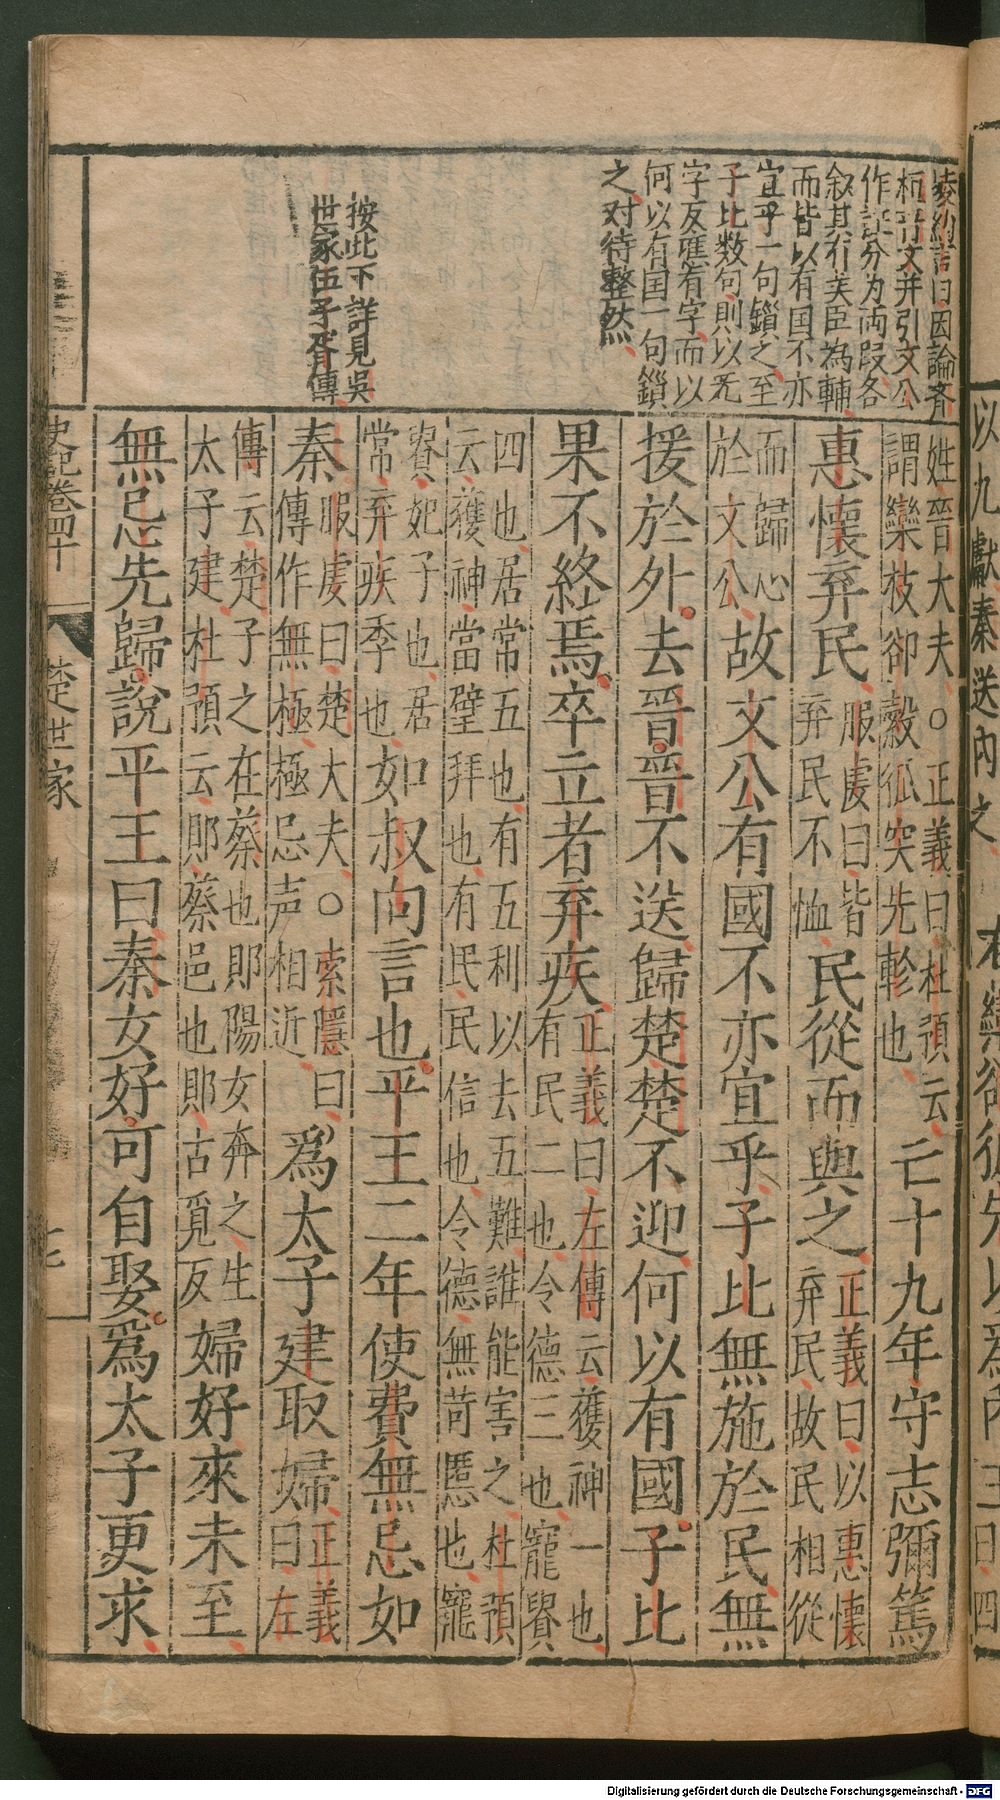 凌約言曰因論齊
桓晉文并引文公
作証分为両段各
叙其行美臣為輔
而皆以有国不亦
宜乎一句鎖之至
子比数句則以无
字反應有字而以
何以有国一句鎖
之对待整然
按此下詳見吳
世家伍子胥傳
姓晉大夫○正義曰杜預云
謂欒枝郤縠狐突先軫也
亡十九年守志彌篤
惠懷弃民
服虔曰皆
弃民不恤
民從而與之
正義曰以惠懷
弃民故民相從
而歸心
於文公
故文公有國不亦宜乎子比無施於民無
援於外去晉晉不送歸楚楚不迎何以有國子比
果不終焉卒立者弃疾
正義曰左傳云獲神一也
有民二也令德三也寵貴
四也居常五也有五利以去五難誰能害之杜預
云獲神當璧拜也有民民信也令德無苛慝也寵
貴妃子也居
常弃疾季也
如叔向言也平王二年使費無忌如
秦
服虔曰楚大夫○索隱曰
傳作無極極忌声相近
爲太子建取婦
正義
曰左
傳云楚子之在蔡也郹陽女奔之生
太子建杜預云郹蔡邑也郹古覓反
婦好來未至
無忌先歸說平王曰秦女好可自娶爲太子更求
史記卷四十
楚世家
七
以九獻秦送內之
Digitalisierung gefördert durch die Deutsche Forschungsgemeinschaft - DFG